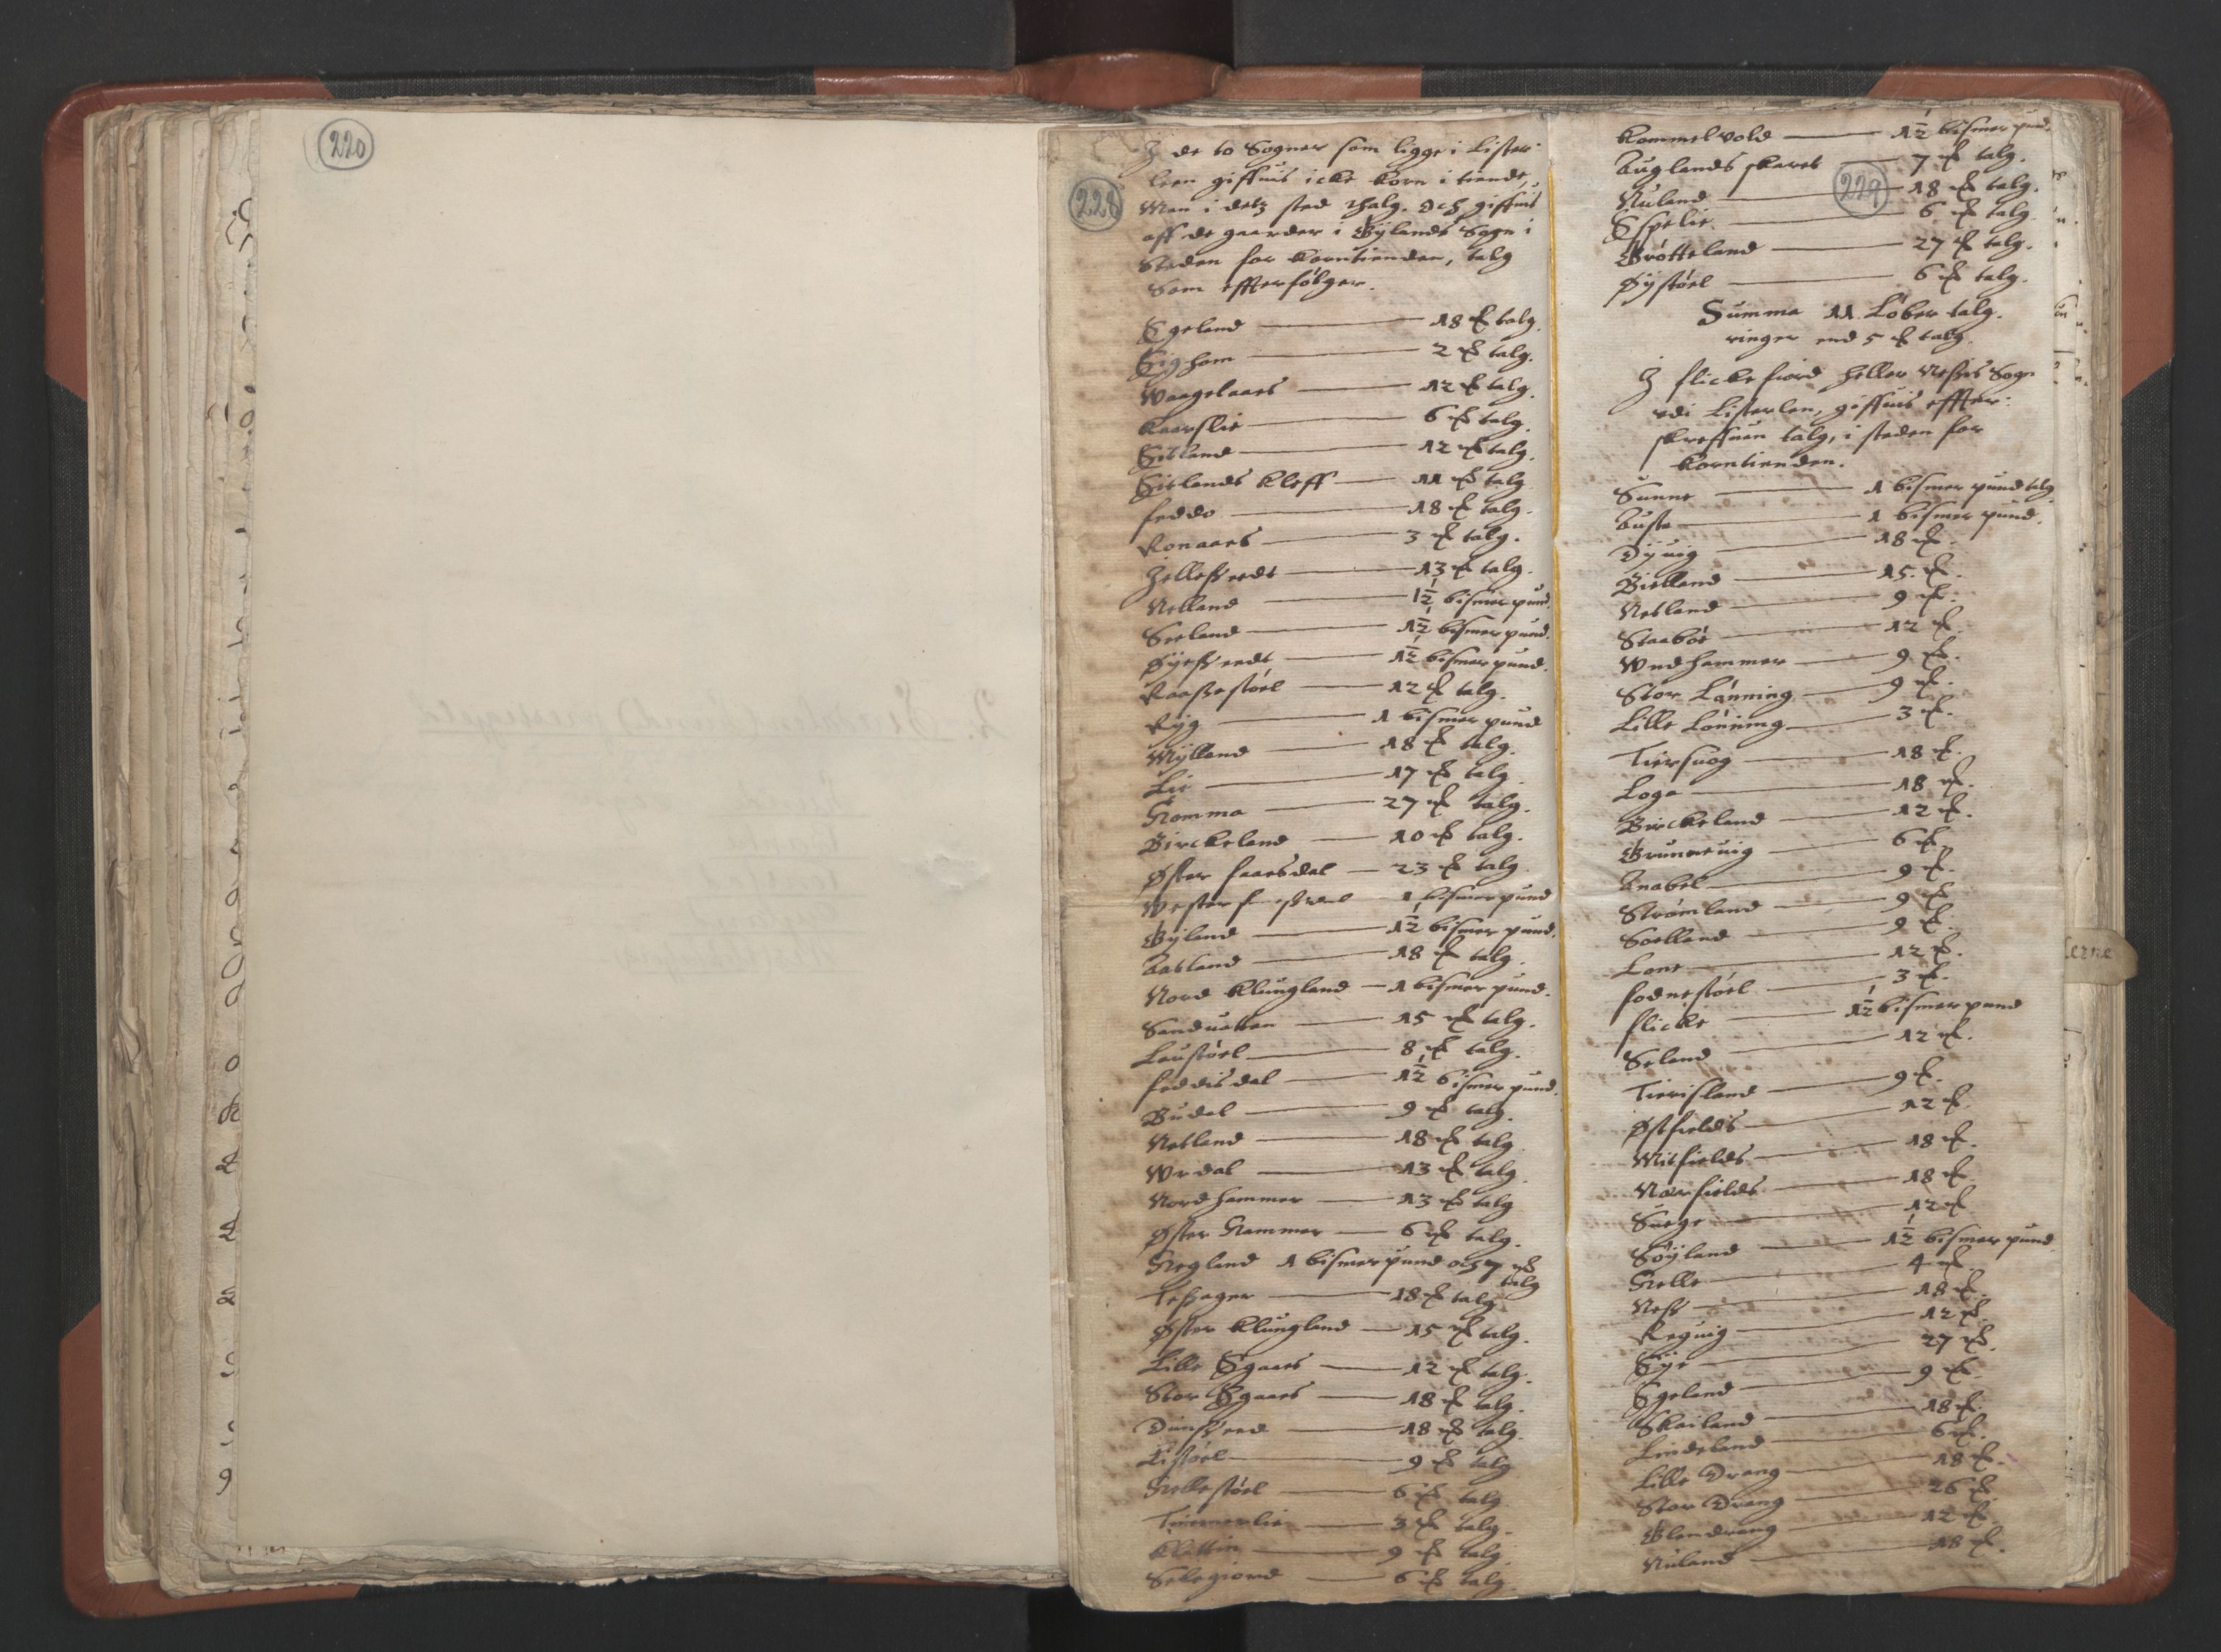 220
228
J de to Sogner som ligge i Lister
leen giffuis icke korn i tiende,
Men i detz sted Thalg. Och giffuis
aff de gaarder i Gylands Sogn i
Steden for korntienden, talg
Som effterfølger.
Egeland 18 ℔ talg.
Eigham 2 ℔ talg.
Waagelaars 12 ℔ talg.
Kaarslie 6 ℔ talg.
Eitland 12 ℔ talg.
Eitlands kleff 11 ℔ talg
Feddo 18 ℔ talg.
Ronaars 3 ℔ talg.
Jllessredt 13 ℔ talg.
Nelland 1½ bismer pund.
Seeland 1½ bismer pund.
Øyessredt 1½ bismer pund.
Raassestøel 12 ℔ talg.
Ryg 1 bismer pund
Mylland 18 ℔ talg.
Lie 17 ℔ talg
Homma 27 ℔ talg.
Birckeland 10 ℔ talg.
Øster Faarsdal 23 ℔ talg
Wester 1 bismer pund
Gyland 1½ bismer pund.
Aatland 18 ℔ talg.
Nord Klungland 1 bismer pund.
Sanduatten 15 ℔ talg.
Laustøel 8 ℔ talg.
Feddisdal 1½ bismer pund.
Budal 9 ℔ talg.
Netland 18 ℔ talg
Wrdal 13 ℔ talg
Nordhammer 13 ℔ talg
Øster Hammer 6 ℔ talg.
Hegland 1 bismer pund och 7 ℔
talg
Tessager 18 ℔ talg
Øster Klungland 15 ℔ talg.
Lille Egaars 12 ℔ talg.
Stor Egaars 18 ℔ talg.
Dunssred 18 ℔ talg.
Listøel 9 ℔ talg
Hellestøel 6 ℔ talg
Timmerlie 3 ℔ talg.
9 ℔ talg
Selegiord 6 ℔ talg.
Kommelvold 1½ bismer pund.
Auglands skaret 7 ℔ talg.
229
Nuland 18 ℔ talg.
Espelie 6 ℔ talg
Brøtteland 27 ℔ talg.
Øystøel 6 ℔ talg.
Summa 11 Løber talg.
ringer end 5 ℔ talg.
J Flickefiord heller Nessis Sogn
vdi Listerlen, giffuis effter:
skreffuen talg, i steden for
korntienden.
Sunne 1 bismer pund talg
Austa 1 bismer pund.
Dyuig 18 ℔.
Bielland 15 ℔.
Netland 9 ℔.
Staabøe 12 ℔.
Wndhammer 9 ℔.
Stor Lønning 9 ℔.
Lille Lønning 3 ℔.
Tiørsuog 18 ℔.
Loga 18 ℔.
Birckeland 12 ℔.
Grunneuig 6 ℔.
Anabel 9 ℔.
Strømland 9 ℔.
Soelland 9 ℔.
Lone 12 ℔.
Fodnestøel 3 ℔.
Flicke 1½ bismer pund
Seland 12 ℔.
Tierisland 9 ℔.
Østfields 12 ℔.
Mitfields 18 ℔.
Nærfields 18 ℔.
Suege 12 ℔
Søyland 1½ bismer pund
Helle 4 ℔.
Ness 18 ℔.
Reguig 12 ℔.
Eye 27 ℔.
Egeland 9 ℔.
Skailand 18 ℔.
Lindeland 6 ℔.
Lille Drang 18 ℔.
Stor Drang 26 ℔
12 ℔.
Nuland 18 ℔.